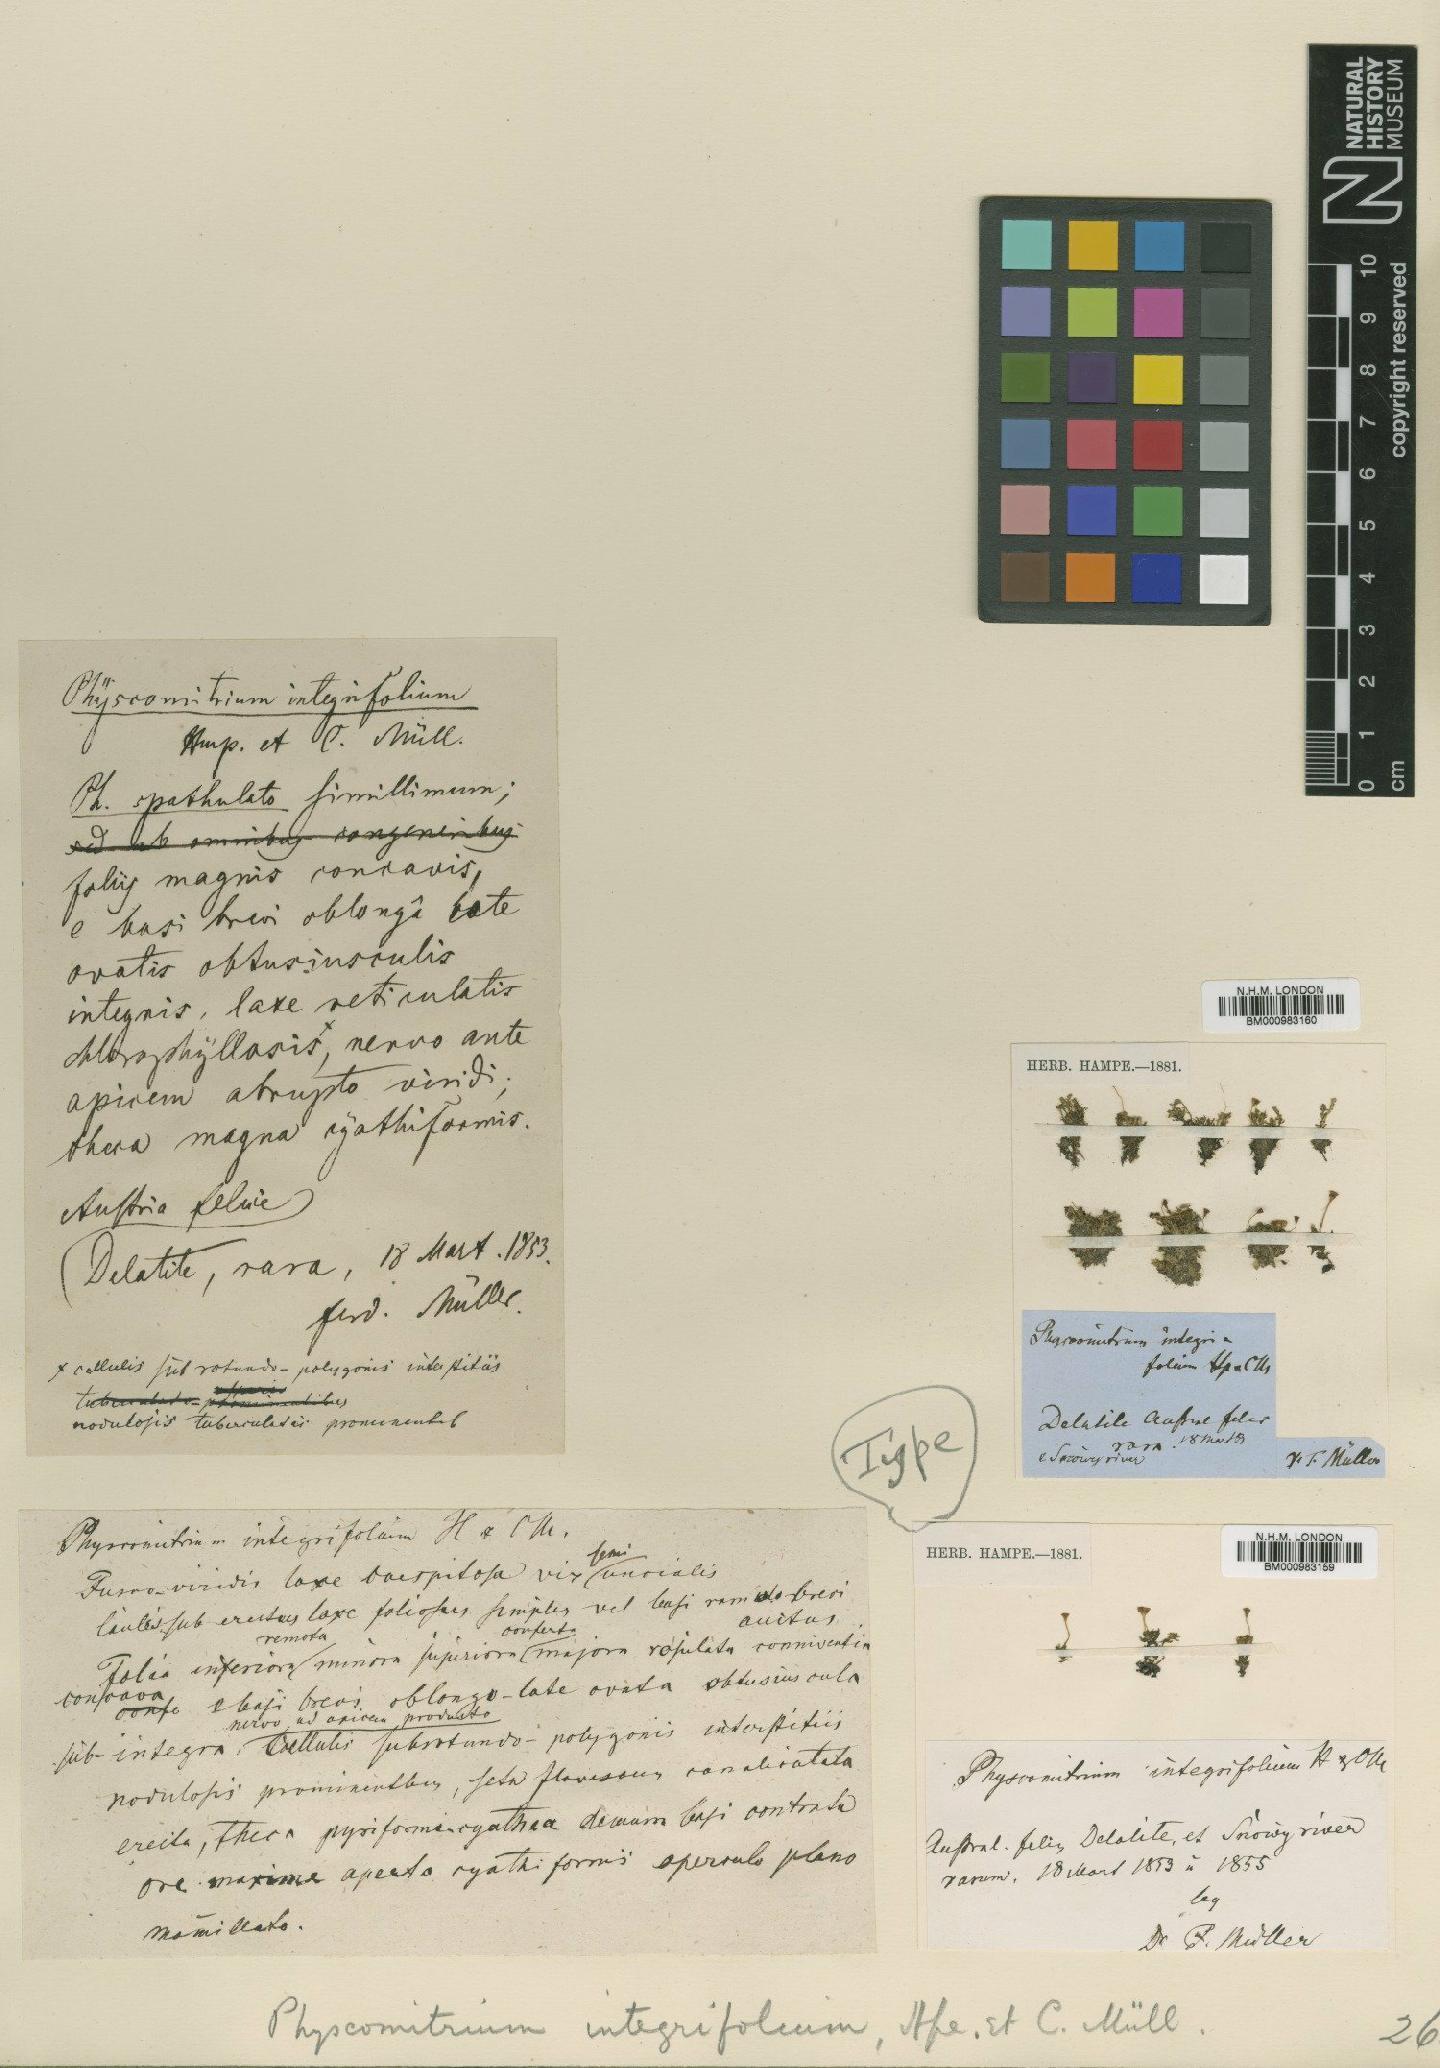 NATURAL
HISTORY
MUSEUM
copyright reserved
10
9
8
7
6
5
4
3
2
1
0
cm
Physcomitrium integrifolium
Hmp. et C. Müll.
Ph. spathulato simillimum;
sed ab omnibus congeneribus
foliis magnis concavis,
e basi brevi oblongâ late
ovatis obtusiusculis
integris, laxe reticulatis
chlorophÿllosis x, nervo ante
apicem abrupto viridi;
theca magna cÿathiformis.
Austria felix
(Delatite, rara, 18 Mart. 1853.
ferd. Müller.
x cellulis subrotundo-polygonis interstitiis
nodulosis tuberculatis prominentib
N.H.M. LONDON
BM000983160
HERB. HAMPE.—1881.
Physcomitrium integri-
folium Hp & CM
Delatite Austral felix
rara 18 Mart 53
e Snowy river
Müller
Type
Physcomitrium integrifolium H & CM.
Fusco-viridis laxe caespitosa vix semi uncialis
caulis sub erectus laxe foliosus simplex vel basi ramulo brevi
auctus
Folia inferiora remota minora superiora conferta majora rosulata conniventia
concava e basi brevi oblongo-late ovata obtusiuscula
nervo ad apicem producto
sub-integra, Cellulis subrotundo-polygonis interstitiis
nodulosis prominentibus, seta flavescens canaliculata
erecta, theca pyriformi-cyathea demum basi contracta
ore maxime aperta cyathiformis operculo plano
mamillato.
HERB. HAMPE.—1881.
N.H.M. LONDON
BM000983159
Physcomitrium integrifolium H & CM
Austral. felix, Delatite, et Snowy river
rarum. 18 Mart 1853 u 1855
leg
Dr F. Müller
Physcomitrium integrifolium, Hpe. et C. Müll.
26